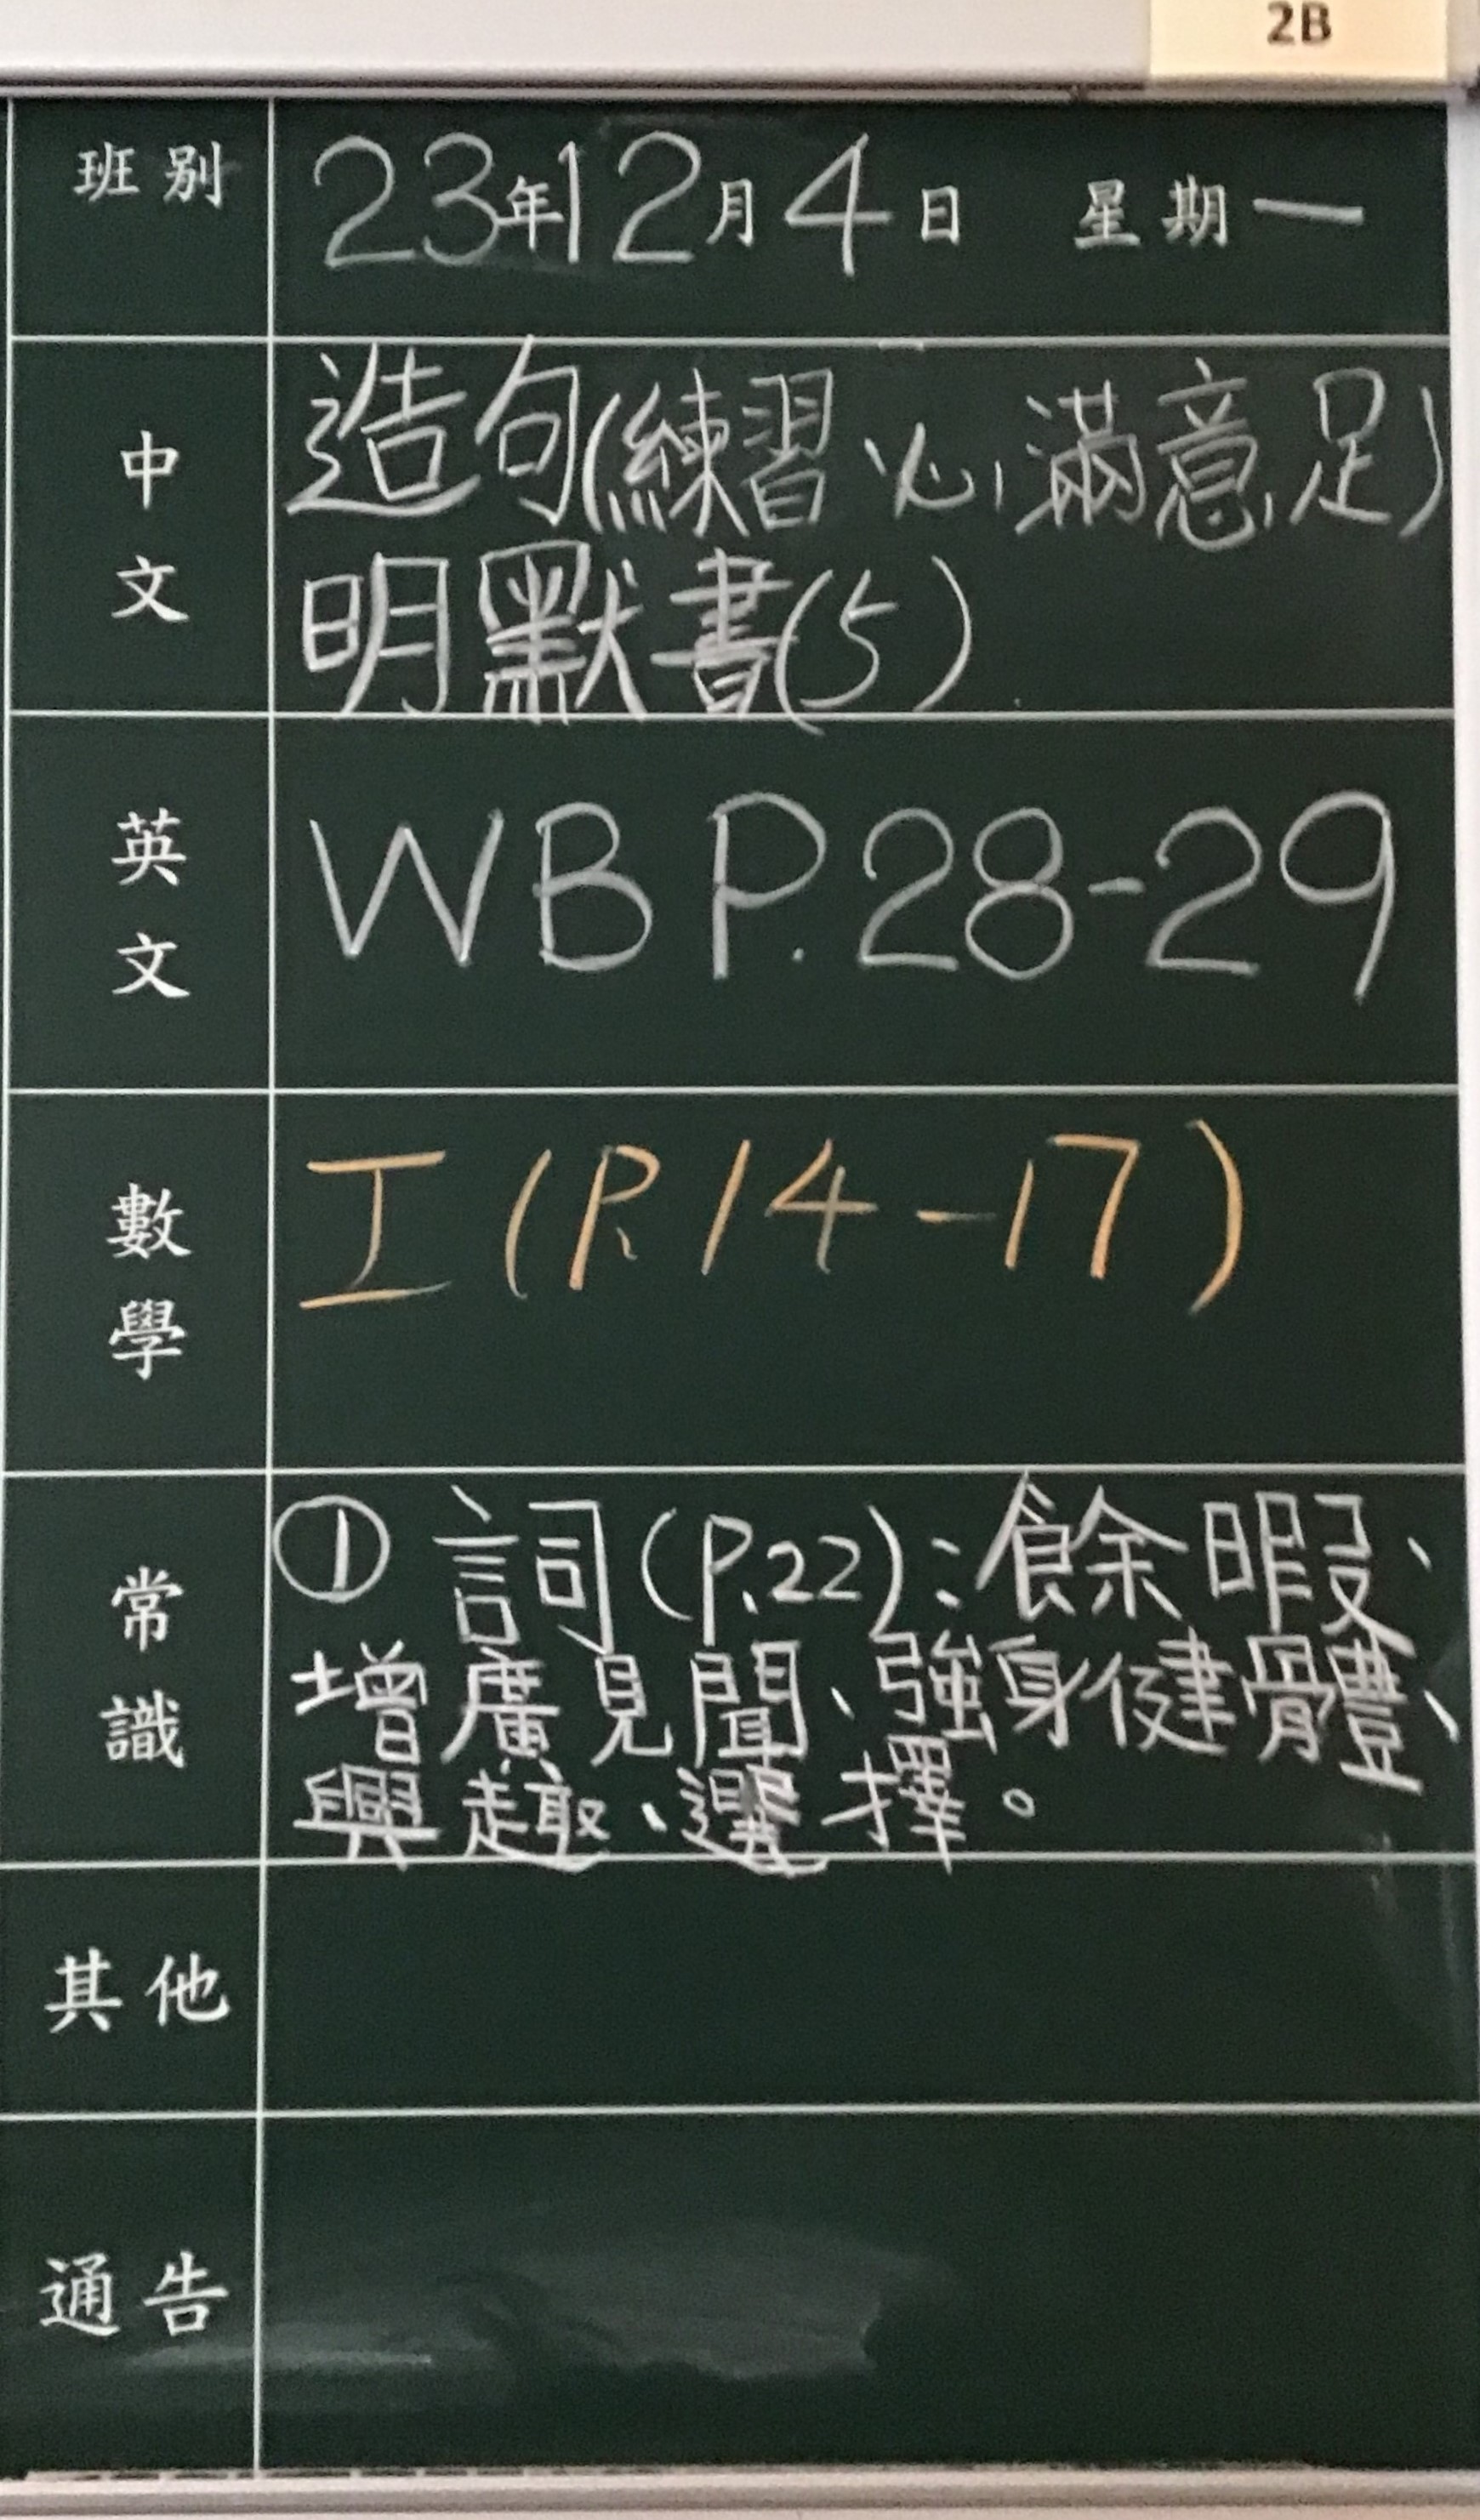 2B
班別 23年12月4日 星期一
中文
造句(練習 心滿意足)
明默書(5)
英文
WB P.28-29
數學
工(P.14-17)
常識
① 詞(P.22):餘暇、
增廣見聞、強身健體、
興趣、選擇。
其他
通告